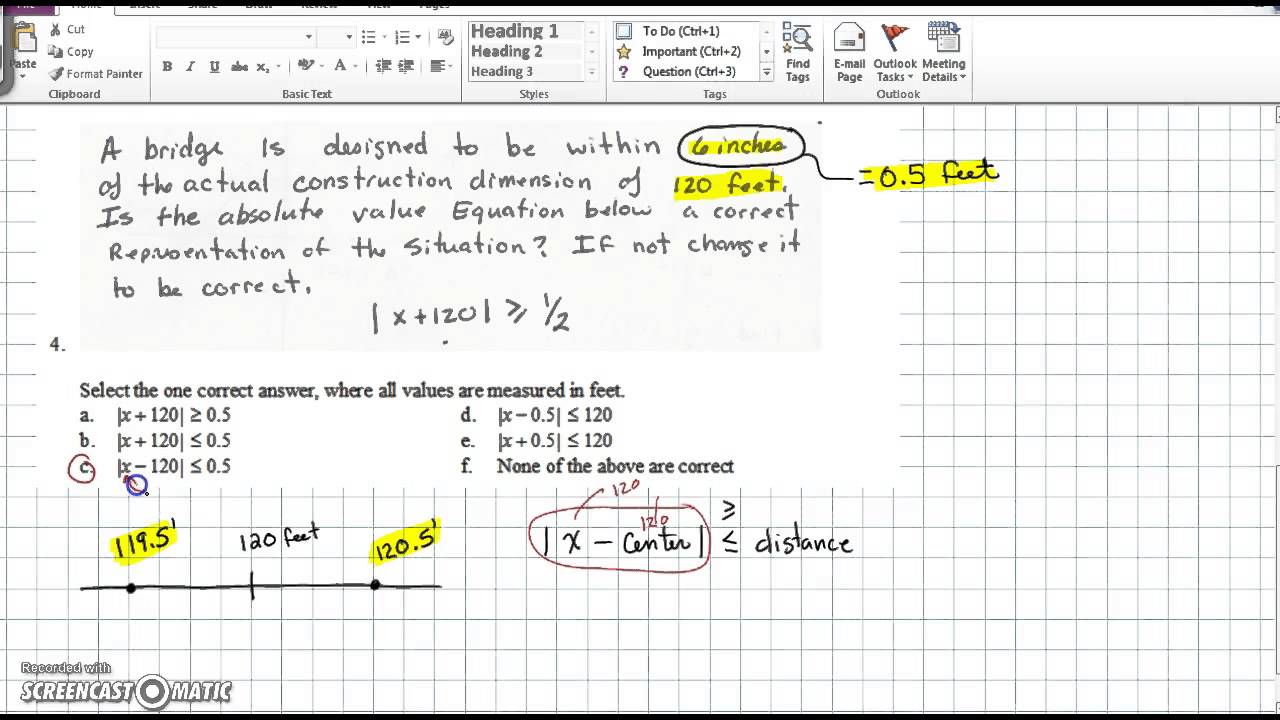 Cut
Copy
Format Painter
Paste
Clipboard
B I U abc x₂ A
Basic Text
Heading 1
Heading 2
Heading 3
Styles
To Do (Ctrl+1)
Important (Ctrl+2)
? Question (Ctrl+3)
Find Tags
Tags
E-mail Page
Outlook Tasks
Meeting Details
Outlook
A bridge is designed to be within 6 inches = 0.5 feet
of the actual construction dimension of 120 feet.
Is the absolute value Equation below a correct
Representation of the Situation? If not change it
to be correct.
|x+120| ≥ 1/2
4.
Select the one correct answer, where all values are measured in feet.
a. |x + 120| ≥ 0.5
b. |x + 120| ≤ 0.5
c. |x − 120| ≤ 0.5
d. |x − 0.5| ≤ 120
e. |x + 0.5| ≤ 120
f. None of the above are correct
119.5' 120 feet 120.5'
120
120
≥
|x − center| ≤ distance
Recorded with
SCREENCAST MATIC